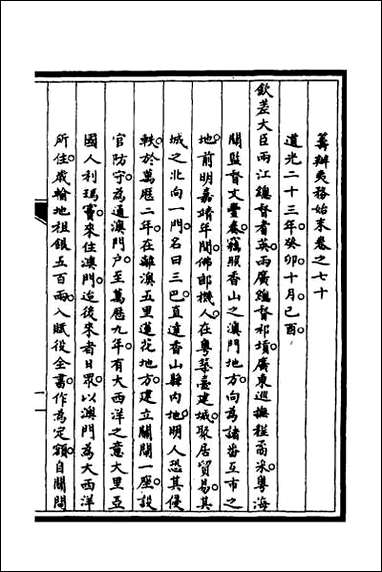 籌辦夷務始末卷之七十
道光二十三年癸卯十月己酉
欽差大臣兩江總督耆英兩廣總督祁𡎴廣東巡撫程矞采粵海
關監督文豐奏竊照香山之澳門地方向為諸番互市之
地前明嘉靖年間佛郎機人在粵築臺建城聚居貿易其
城之北向一門名曰三巴直達香山縣內地明人恐其侵
軼於萬厯二年在離澳五里蓮花地方建立關閘一座設
官防守為通澳門户至萬厯九年有大西洋之意大里亞
國人利瑪竇來住澳門迨後來者日眾以澳門為大西洋
所住歲輸地租銀五百兩入賦役全書作為定額自關閘